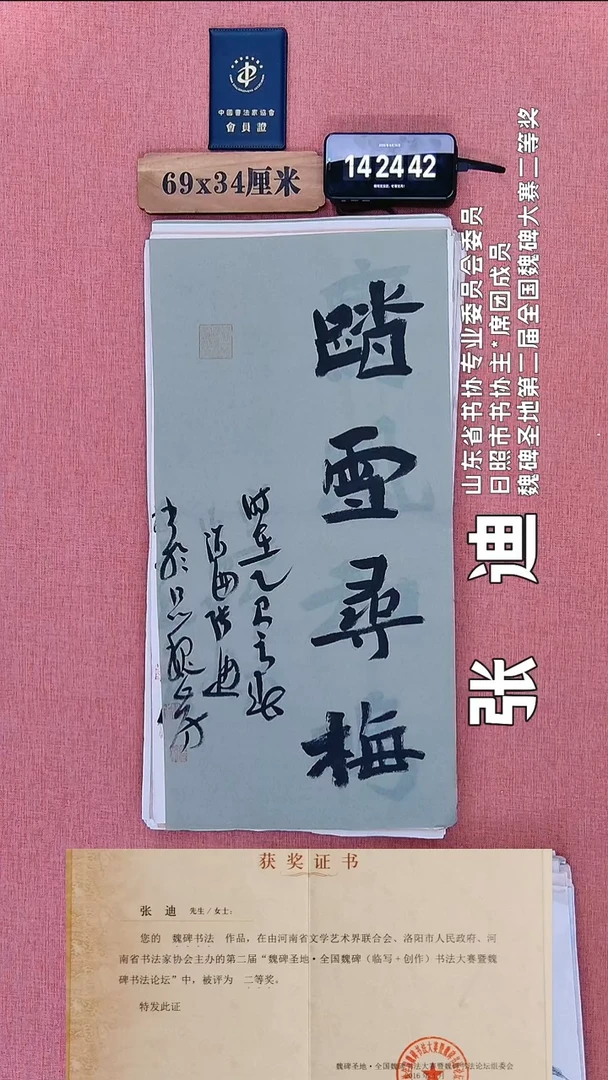 中國書法家協會
會員證
69x34厘米
14 24 42
踏雪尋梅
时在乙巳之秋
山东省书协专业委员会委员
日照市书协主*席团成员
魏碑圣地第二届全国魏碑大赛二等奖
张 迪
获奖证书
张 迪 先生/女士:
您的 魏碑书法 作品,在由河南省文学艺术界联合会、洛阳市人民政府、河
南省书法家协会主办的第二届“魏碑圣地·全国魏碑(临写+创作)书法大赛暨魏
碑书法论坛”中,被评为 二等奖。
特发此证
魏碑圣地·全国魏碑书法大赛暨魏碑书法论坛组委会